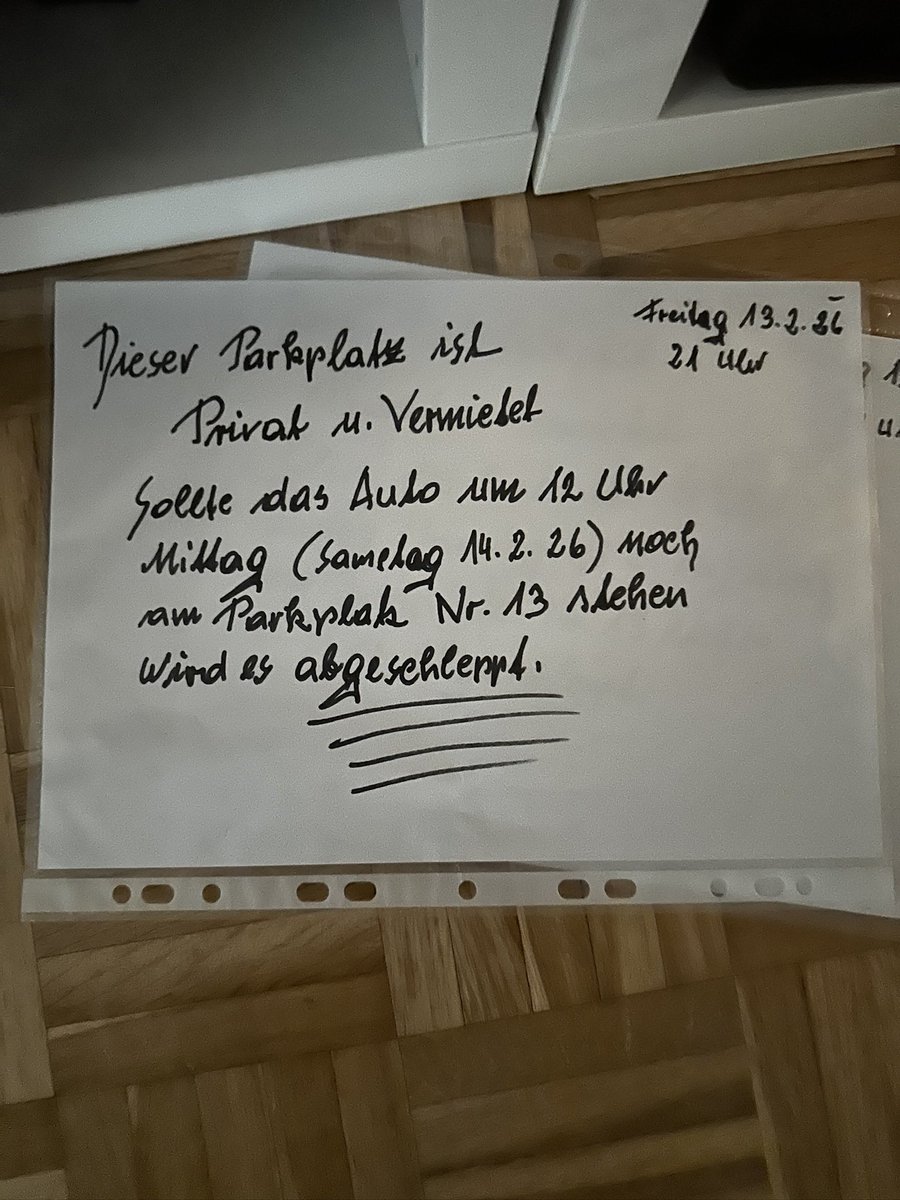 Freitag 13.2.26
21 Uhr
Dieser Parkplatz ist
Privat u. Vermietet
Sollte das Auto um 12 Uhr
Mittag (Samstag 14.2.26) noch
am Parkplatz Nr. 13 stehen
wird es abgeschleppt.